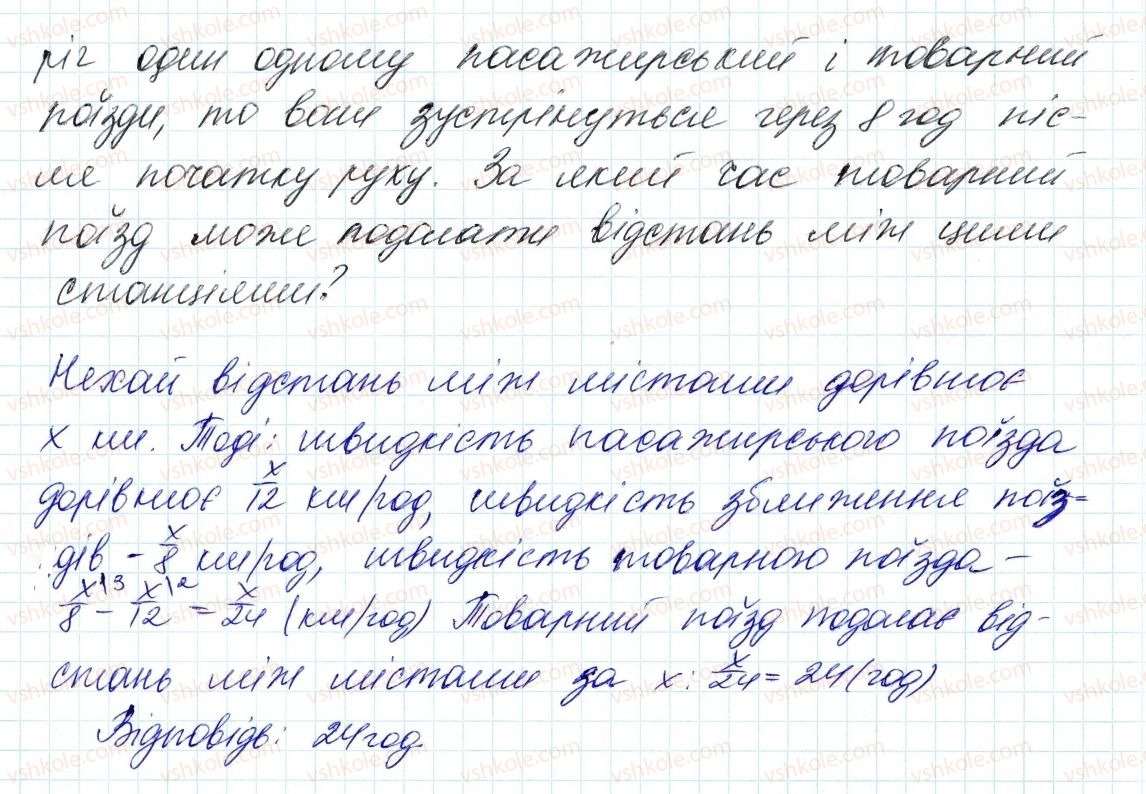 ріг один одному пасажирський і товарний
поїзди, то вони зустрінуться через 8 год піс-
ля початку руху. За який час товарний
поїзд може подолати відстань між цими
станціями?
Нехай відстань між містами дорівнює
x км. Тоді: швидкість пасажирського поїзда
дорівнює x/12 км/год, швидкість зближення поїз-
дів - x/8 км/год, швидкість товарного поїзда -
x\3/8 - x\2/12 = x/24 (км/год) Товарний поїзд подолає від-
стань між містами за x : x/24 = 24 (год)
Відповідь: 24 год.